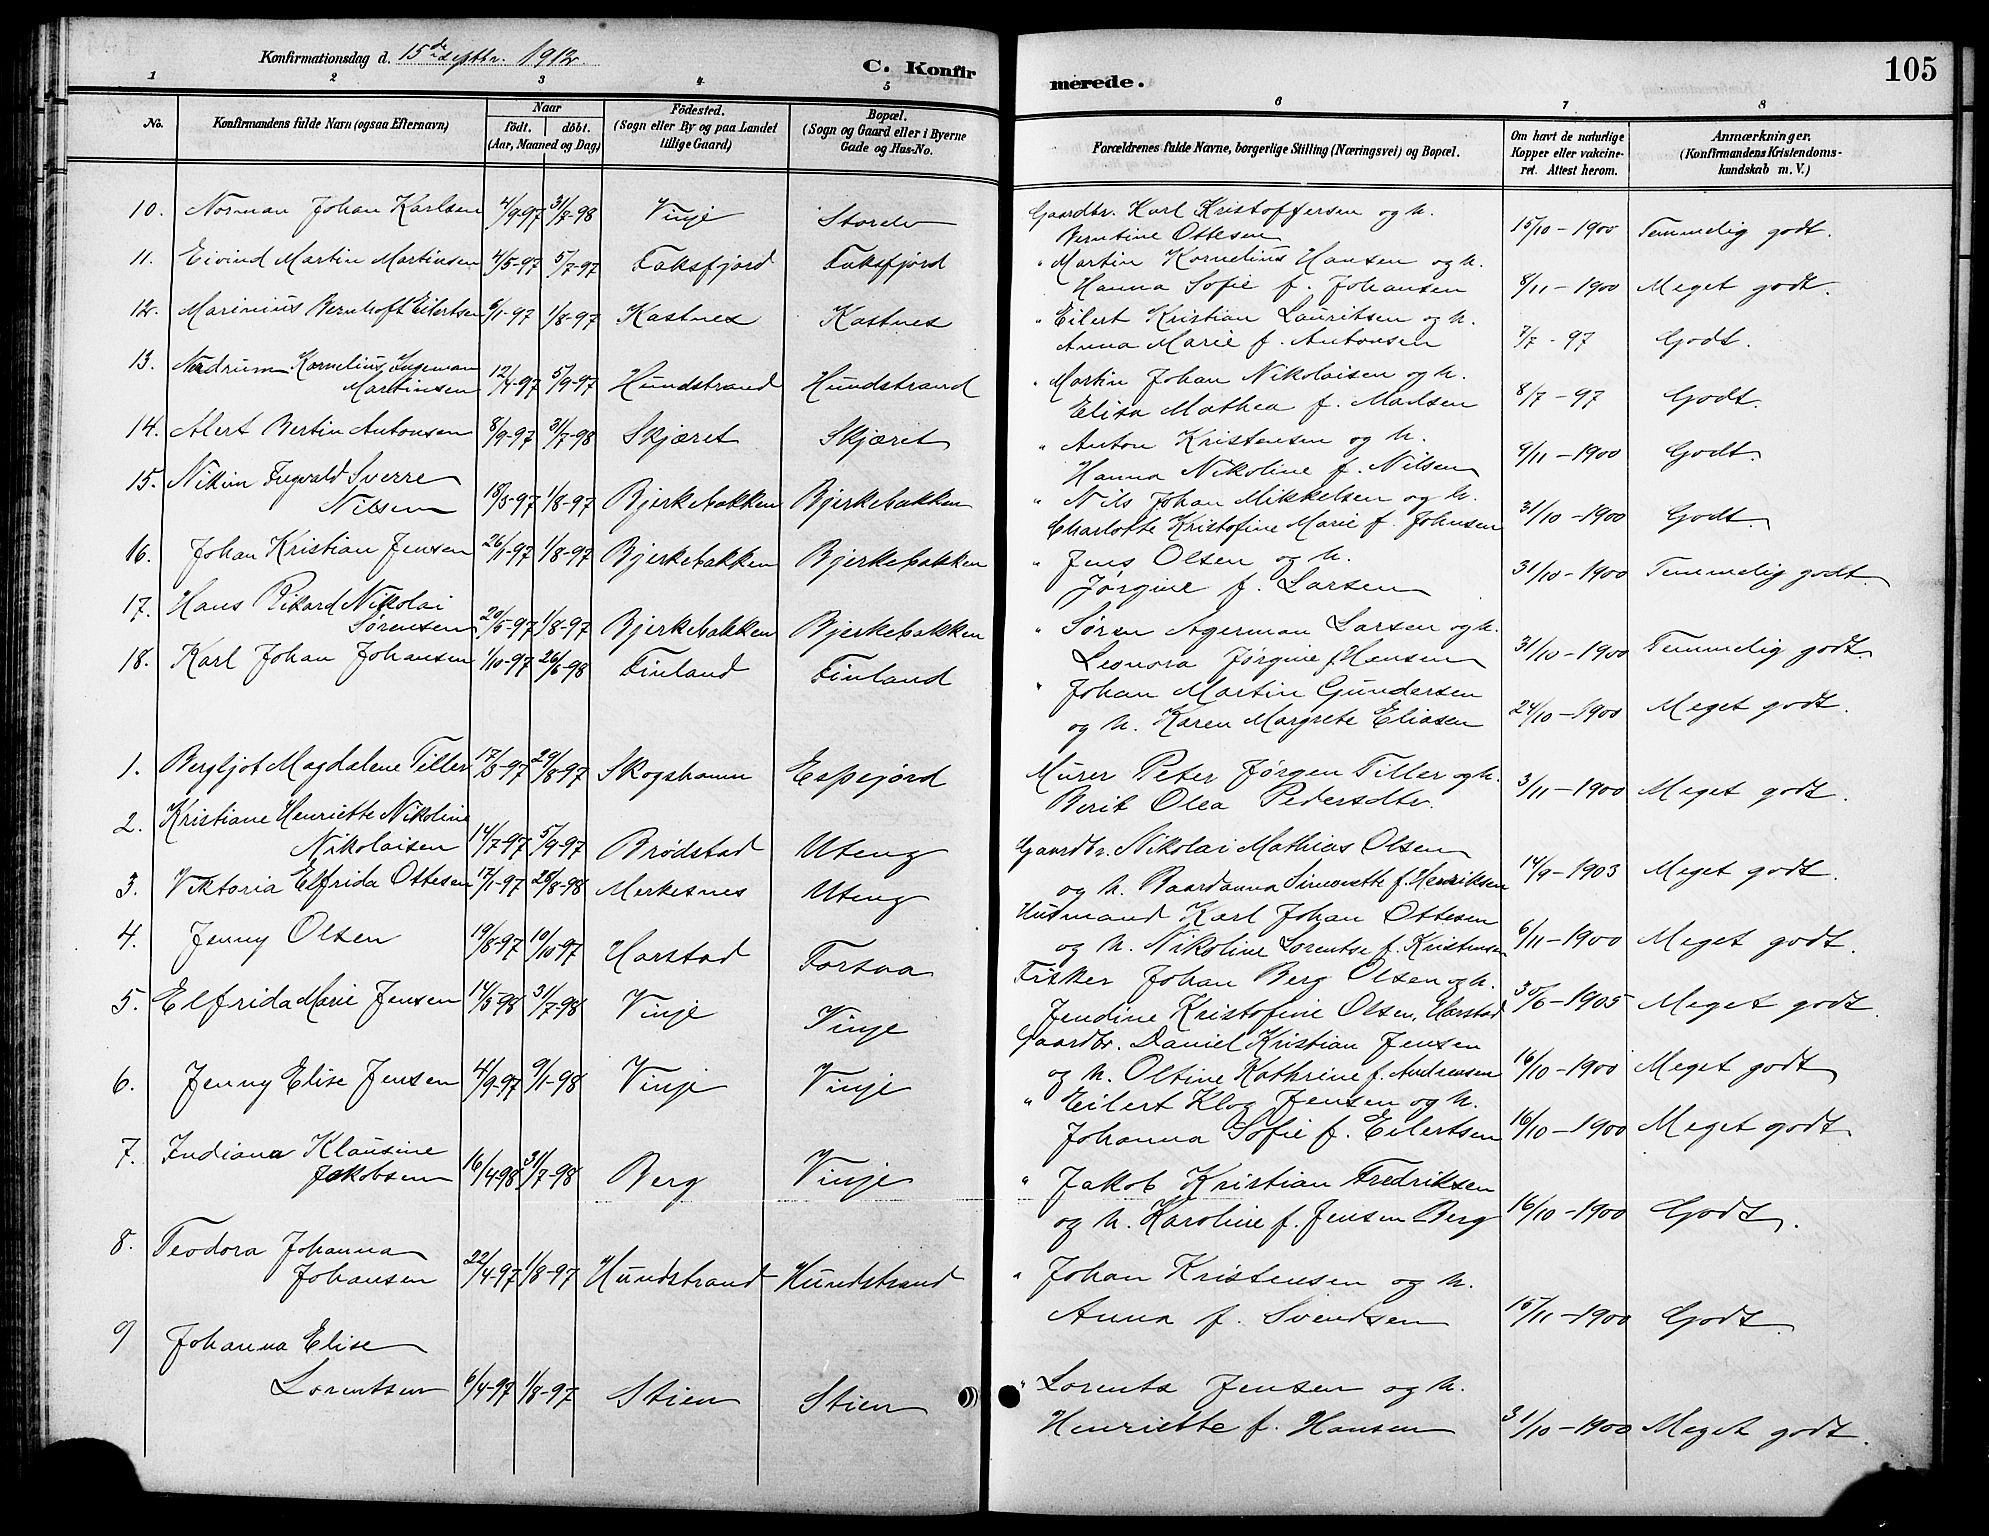 Konfirmationsdag d. 15de septbr. 1912.
C. Konfirmerede.
105
1 2 3 4 5 6 7 8
No.
Konfirmandens fulde Navn (ogsaa Efternavn)
Naar födt. döbt. (Aar, Maaned og Dag)
Födested. (Sogn eller By og paa Landet tillige Gaard)
Bopæl. (Sogn og Gaard eller i Byerne Gade og Hus-No.
Forældrenes fulde Navne, borgerlige Stilling (Næringsvei) og Bopæl.
Om havt de naturlige Kopper eller vakcineret. Attest herom.
Anmærkninger. (Konfirmandens Kristendomskundskab m. V.)
10. Norman Johan Karlsen 4/9-97 31/7-98 Vinje Storelv Gaardbr. Karl Kristoffersen og h. 15/10-1900 Temmelig godt.
Berntine Ottesen
11. Eivind Martin Martinsen 4/5-97 5/7-97 Faksfjord Faksfjord " Martin Kornelius Hansen og h.
Hanna Sofie f. Johansen 8/11-1900 Meget godt.
12. Marinius Bernhoft Eilertsen 6/1-97 1/8-97 Kastnes Kastnes " Eilert Kristian Lauritsen og h.
Anna Marie f. Antonsen 7/7-97 Godt.
13. Nordrum Kornelius Ingeman
Martinsen 12/4-97 5/9-97 Hundstrand Hundstrand " Martin Johan Nikolaisen og h.
Elisa Mathea f. Madsen 8/7-97 Godt.
14. Alert Bertin Antonsen 8/9-97 31/7-98 Skjæret Skjæret " Anton Kristensen og h.
Hanna Nikoline f. Nilsen 9/11-1900 Godt.
15. Ingvald Sverre
Nilsen 18/5-97 1/8-97 Bjerkebakken Bjerkebakken " Nils Johan Mikkelsen og h.
Charlotte Kristofine Marie f. Johnsen 31/10-1900 Godt.
16. Johan Kristian Jensen 26/1-97 1/8-97 Bjerkebakken Bjerkebakken " Jens Olsen og h.
Jørgine f. Larsen 31/10-1900 Temmelig godt
17. Hans Rikard Nikolai
Sørensen 20/5-97 1/8-97 Bjerkebakken Bjerkebakken " Søren Agerman Larsen og h.
Leonora Jørgine f. Hansen 31/10-1900 Temmelig godt.
18. Karl Johan Johansen 1/10-97 26/6-98 Finland Finland " Johan Martin Gundersen
og h. Karen Margrete Eliasen 24/10-1900 Meget godt.
1. Bergljot Magdalene Tiller 17/3-97 29/8-97 Skogshamn Espejord Murer Peter Jørgen Tiller og h.
Berit Olea Pedersdtr. 3/11-1900 Meget godt.
2. Kristiane Henriette Nikoline
Nikolaisen 14/7-97 5/9-97 Brødstad Uteng Gaardbr. Nikolai Mathias Olsen
og h. Baardanna Simonette f. Henriksen 14/9-1903 Meget godt.
3. Viktoria Elfrida Ottesen 17/1-97 28/8-98 Merkesnes Uteng Husmand Karl Johan Ottesen
og h. Nikoline Lorentse f. Kristensen 6/11-1900 Meget godt.
4. Jenny Olsen 19/8-97 10/10-97 Harstad Forsaa Fisker Johan Berg Olsen og h.
Jendine Kristofine Olsen, Harstad 30/6-1905 Meget godt.
5. Elfrida Marie Jensen 14/5-98 31/7-98 Vinje Vinje Gaardbr. Daniel Kristian Jensen
og h. Oltine Kathrine f. Andreasen 16/10-1900 Meget godt
6. Jenny Elise Jensen 4/9-97 9/1-98 Vinje Vinje " Eilert Klog Jensen og h.
Johanna Sofie f. Eilertsen 16/10-1900 Meget godt
7. Indiana Klausine
Jakobsen 16/4-98 31/7-98 Berg Vinje " Jakob Kristian Fredriksen
og h. Karoline f. Jensen Berg 16/10-1900 Godt.
8. Teodora Johanna
Johansen 22/4-97 1/8-97 Hundstrand Hundstrand " Johan Kristensen og h.
Anna f. Svendsen 15/11-1900 Godt.
9 Johanna Elise
Lorentsen 6/4-97 1/8-97 Stien Stien " Lorents Jensen og h.
Henriette f. Hansen 31/10-1900 Meget godt.